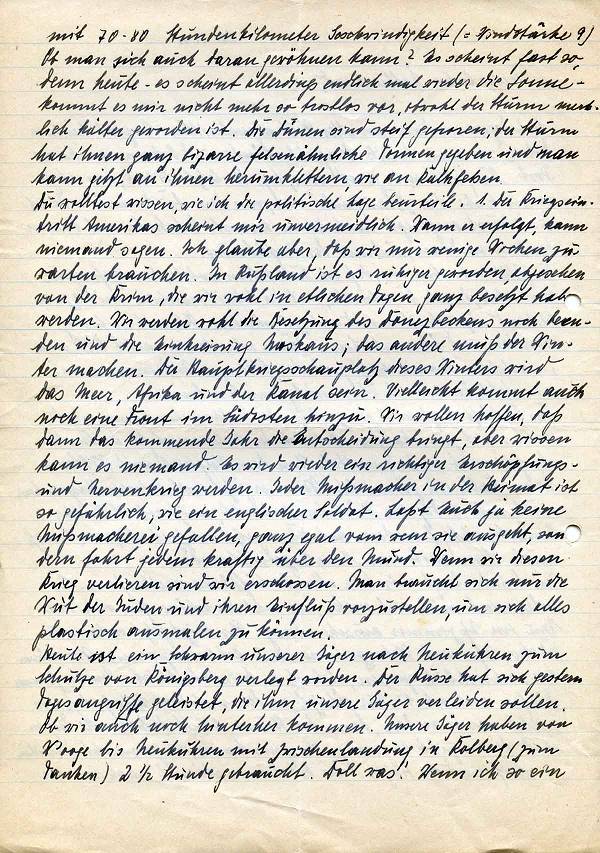 mit 70-80 Stundenkilometer Geschwindigkeit (= Windstärke 9)
Ob man sich auch daran gewöhnen kann? Es scheint fast so,
denn heute - es scheint allerdings endlich mal wieder die Sonne -
kommt es mir nicht mehr so trostlos vor, obwohl der Sturm merk-
lich kälter geworden ist. Die Dünen sind steif gefroren; der Sturm
hat ihnen ganz bizarre felsenähnliche Formen gegeben und man
kann jetzt an ihnen herumklettern, wie an Kalkfelsen.
Du wolltest wissen, wie ich die politische Lage beurteile. 1. Der Kriegsein-
tritt Amerikas scheint mir unvermeidlich. Wann er erfolgt, kann
niemand sagen. Ich glaube aber, daß wir nur wenige Wochen zu
warten brauchen. In Rußland ist es ruhiger geworden abgesehen
von der Krim, die wir wohl in etlichen Tagen ganz besetzt haben
werden. Wir werden wohl die Besetzung des Donezbeckens noch been-
den und die Einkreisung Moskaus; das andere muß der Win-
ter machen. Der Hauptkriegsschauplatz dieses Winters wird
das Meer, Afrika und der Kanal sein. Vielleicht kommt auch
noch eine Front im Südosten hinzu. Wir wollen hoffen, daß
dann das kommende Jahr die Entscheidung bringt, aber wissen
kann es niemand. Es wird wieder ein richtiger Erschöpfungs-
und Nervenkrieg werden. Jeder Miesmacher in der Heimat ist
so gefährlich, wie ein englischer Soldat. Laßt Euch ja keine
Mießmacherei gefallen, ganz egal von wem sie ausgeht, son
dern fahrt jedem kräftig über den Mund. Wenn wir diesen
Krieg verlieren sind wir erschossen. Man braucht sich nur die
Wut der Juden und ihren Einfluß vorzustellen, um sich alles
plastisch ausmalen zu können.
Heute ist ein Schwarm unserer Jäger nach Neukuhren zum
Schutze von Königsberg verlegt worden. Der Russe hat sich gestern
Tagesangriffe geleistet, die ihm unsere Jäger verleiden sollen.
Ob wir auch noch hinterher kommen. Unsere Jäger haben von
bis Neukuhren mit Zwischenlandung in Kolberg (zum
Tanken) 2 1/2 Stunde gebraucht. Doll was! Wenn ich so ein